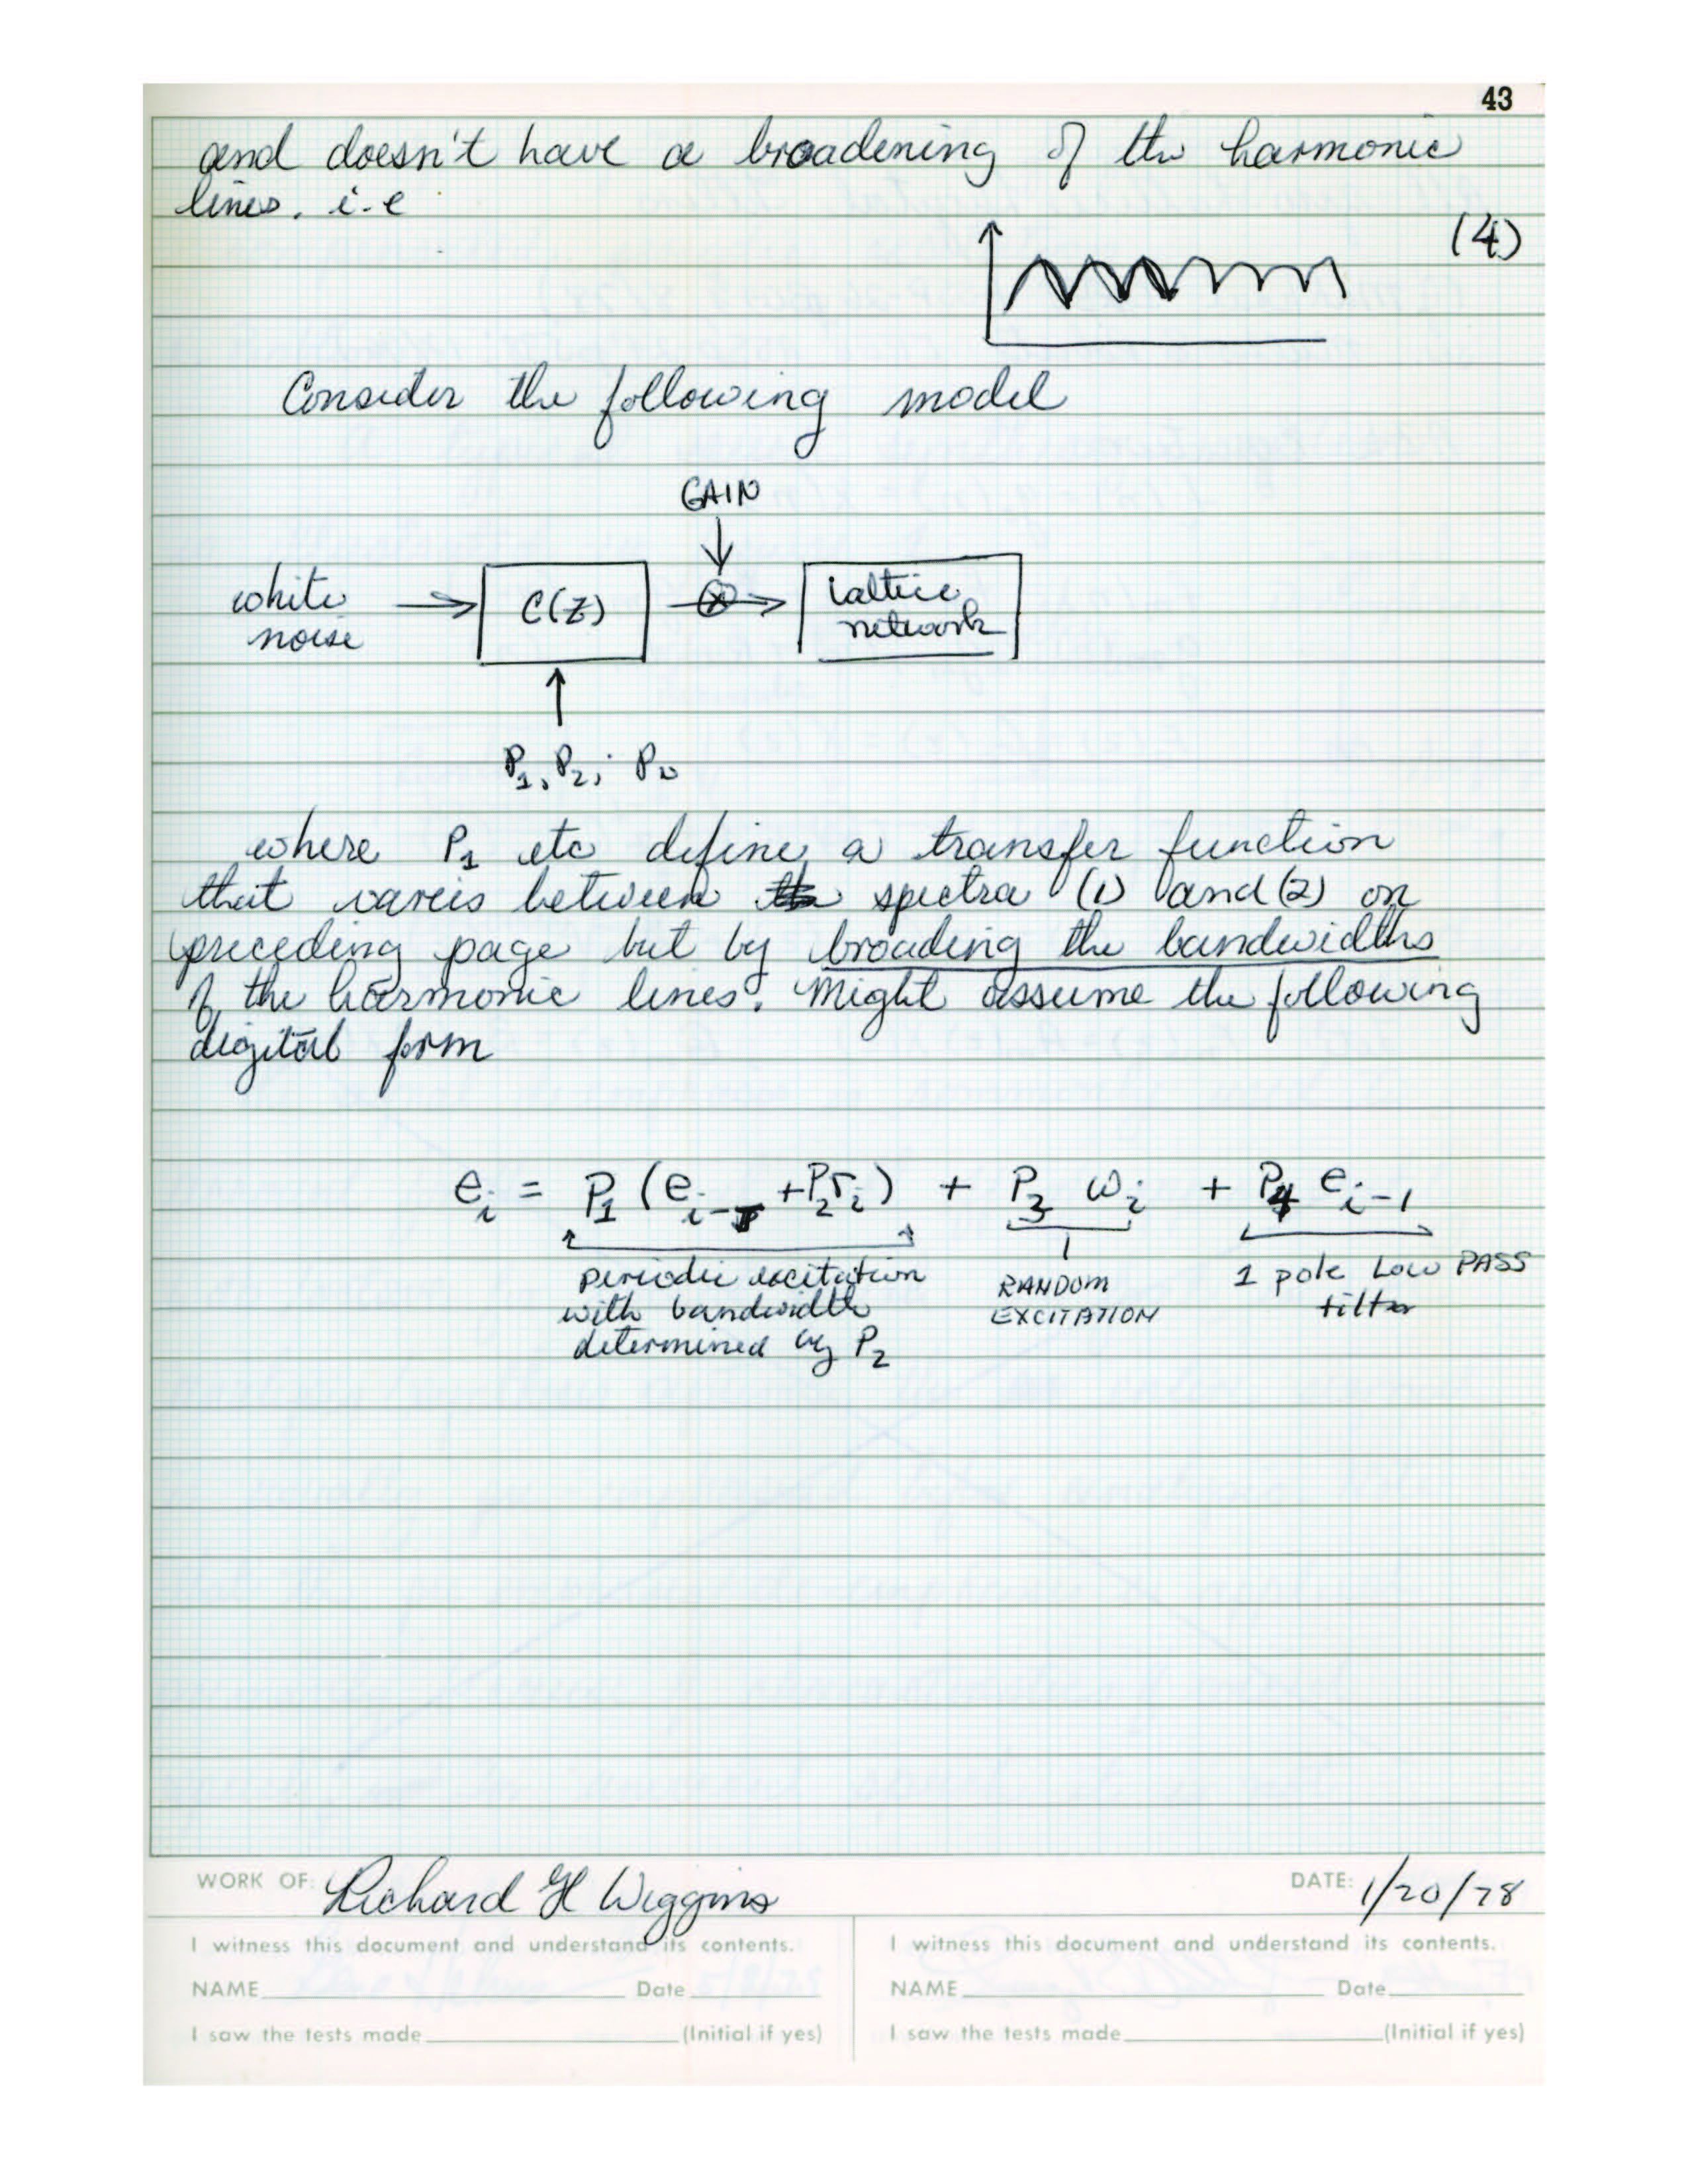 43
and doesn't have a broadening of the harmonic
lines. i-e
(4)
Consider the following model
GAIN
white
noise
C(Z)
lattice
network
P1, P2,
where P1 etc define a transfer function
that vareis between spectra (1) and (2) on
preceding page but by broading the bandwidths
of the harmonic lines. Might assume the following
digital form
e_i = P1 (e_i-T + P2 r_i) + P3 ω_i + P4 e_i-1
periodic excitation
with bandwidth
determined by P2
RANDOM
EXCITATION
1 pole LOW PASS
filter
WORK OF: Richard H Wiggins
DATE: 1/20/78
I witness this document and understand its contents.
NAME Date
I saw the tests made (Initial if yes)
I witness this document and understand its contents.
NAME Date
I saw the tests made (Initial if yes)